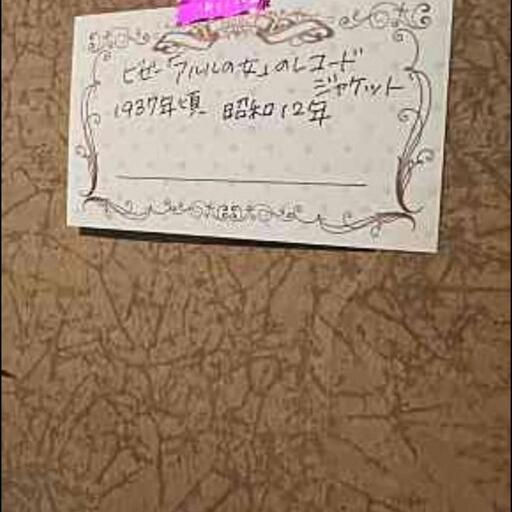 ビゼー「アルルの女」のレコード
ジャケット
1937年頃 昭和12年